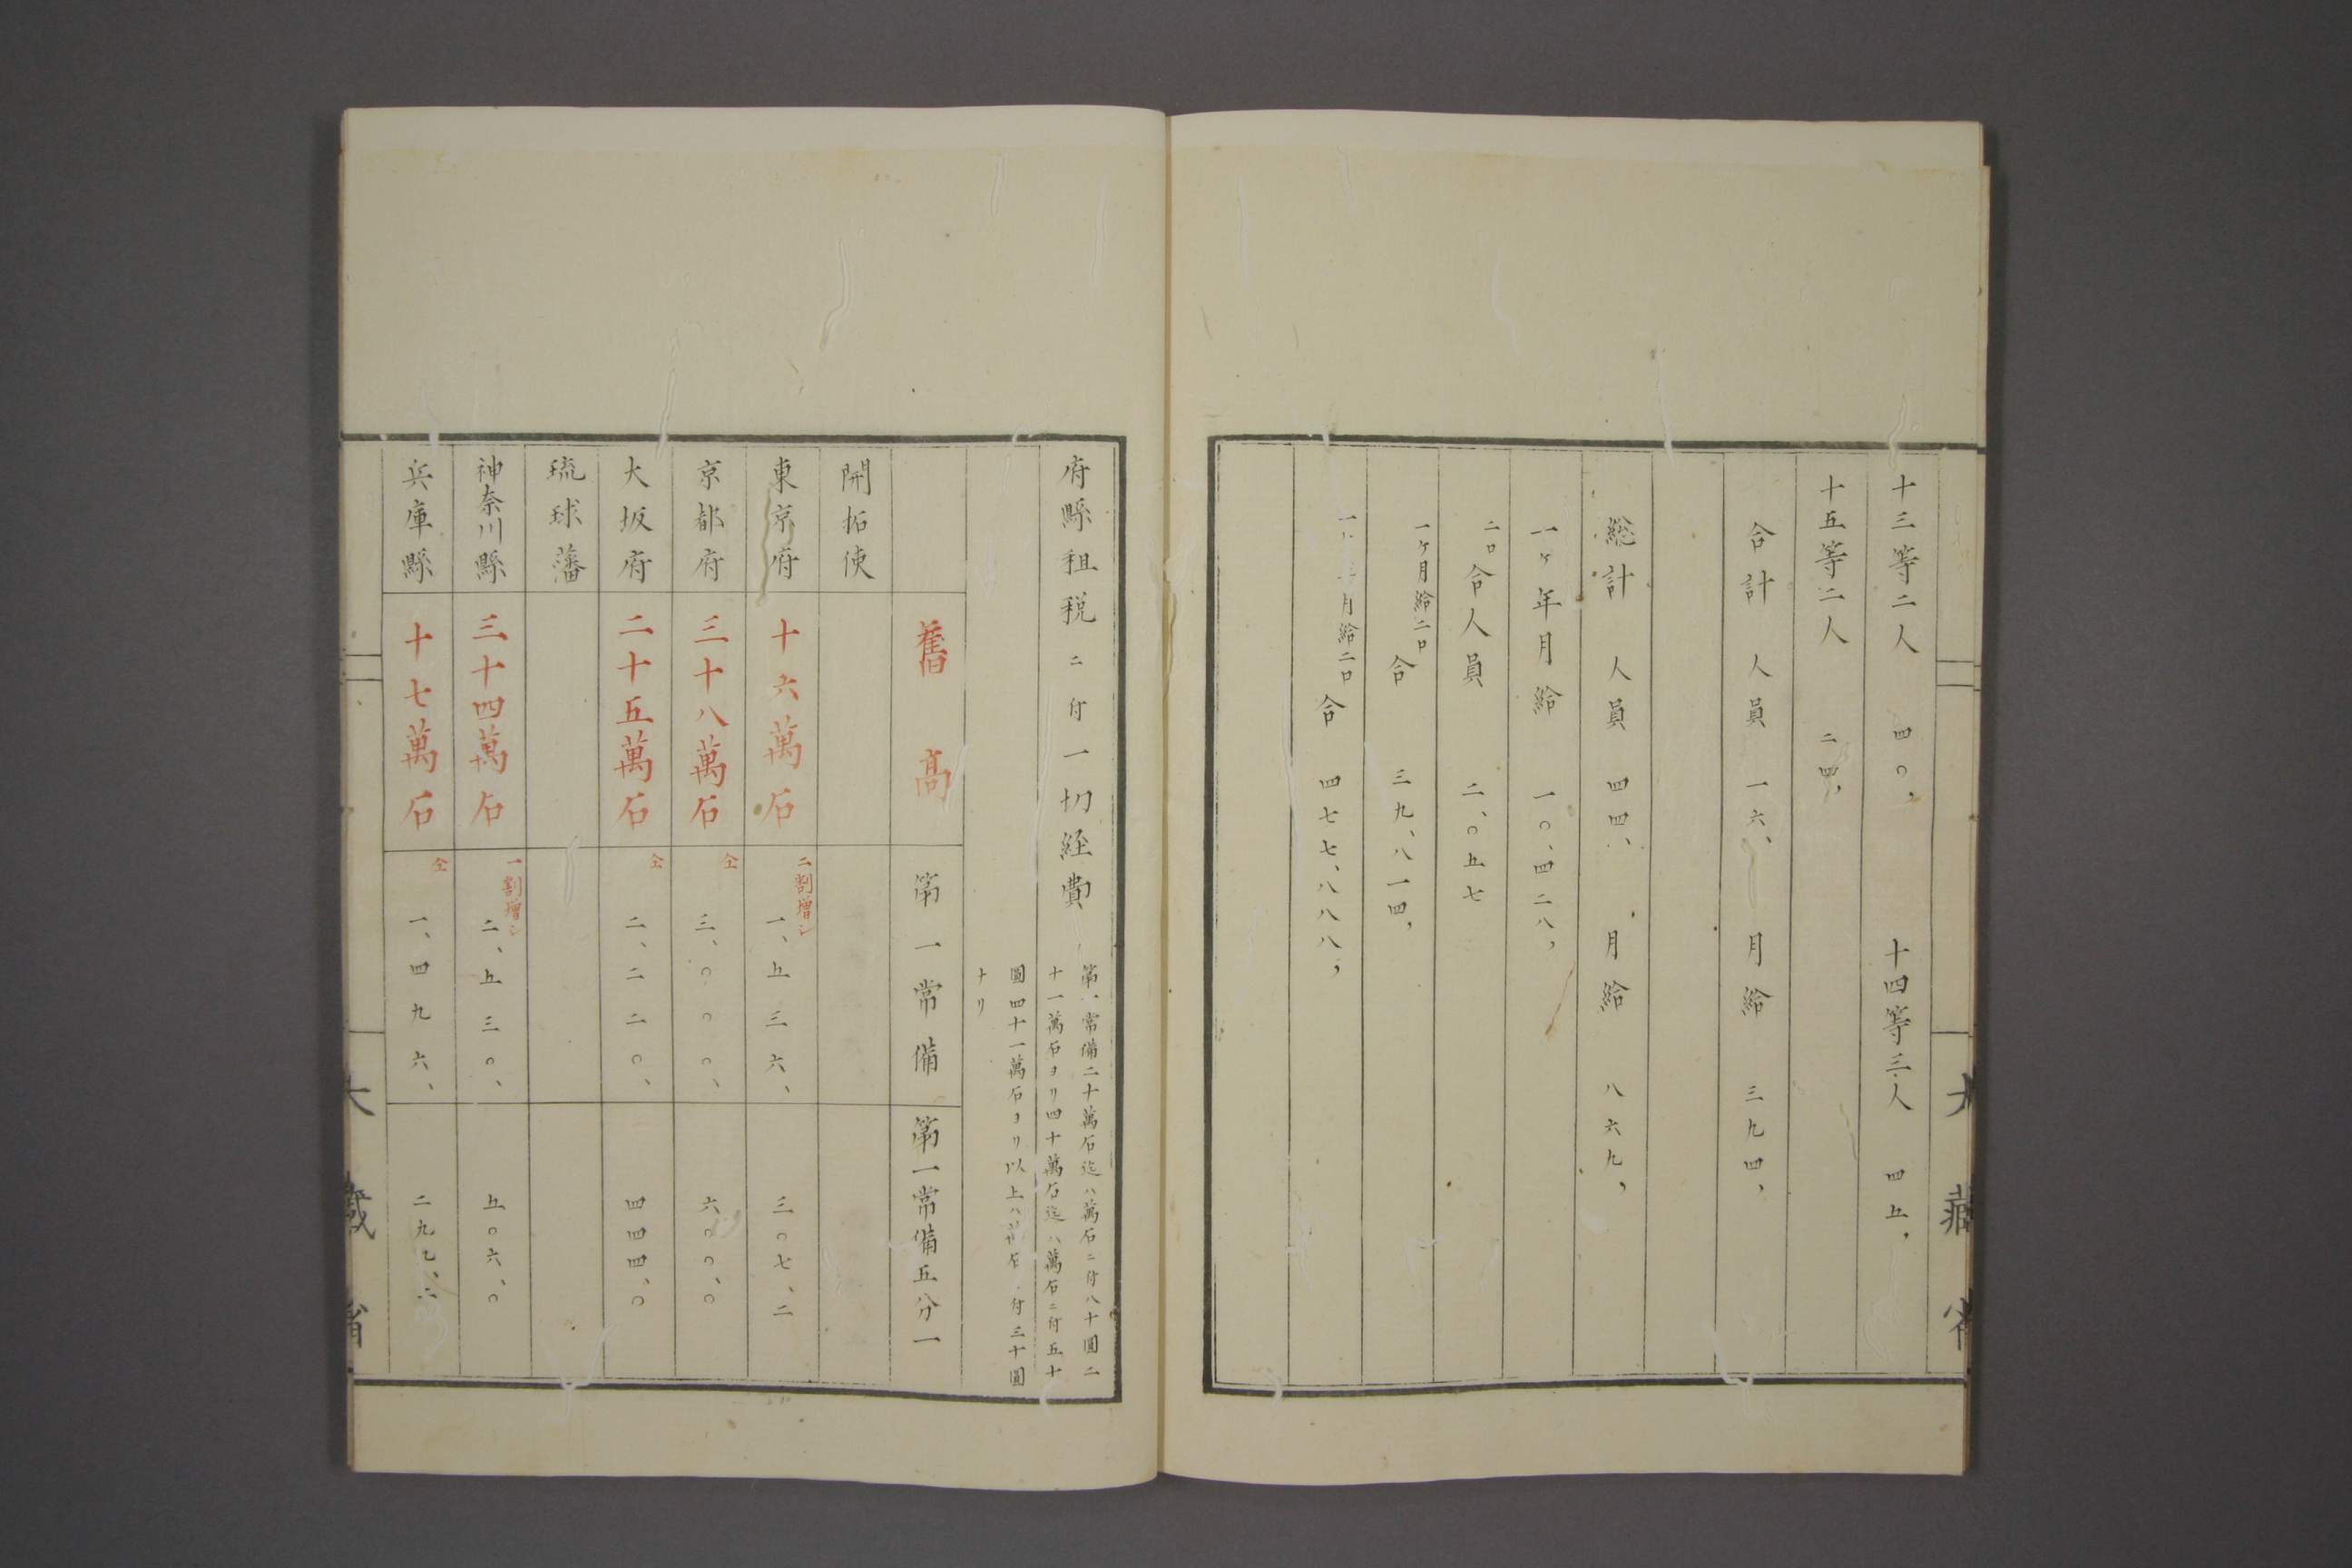 十三等二人 四〇、 十四等三人 四五、
十五等二人 二四、
合計 人員 一六、 月給 三九四、
総計 人員 四四、 月給 八六九、
一ヶ年月給 一〇、四二八、
二口合人員 二、〇五七
一ヶ月給二口合 三九、八一四、
月給二口合 四七七、八八八、
大藏省
府縣租税ニ付一切経費
第一常備二十萬石迄ハ萬石ニ付八十圓二
十一萬石ヨリ四十萬石迄ハ萬石ニ付五十
圓四十一萬石ヨリ以上ハ萬石 付三十圓
ナリ
舊高 第一常備 第一常備五分一
開拓使
東京府 十六萬石 二割増シ 一、五三六、 三〇七、二
京都府 三十八萬石 仝 三、〇〇〇、 六〇〇、〇
大坂府 二十五萬石 仝 二、二二〇、 四四四、〇
琉球藩
神奈川縣 三十四萬石 一割増シ 二、五三〇、 五〇六、〇
兵庫縣 十七萬石 仝 一、四九六、 二九九、二
大藏省